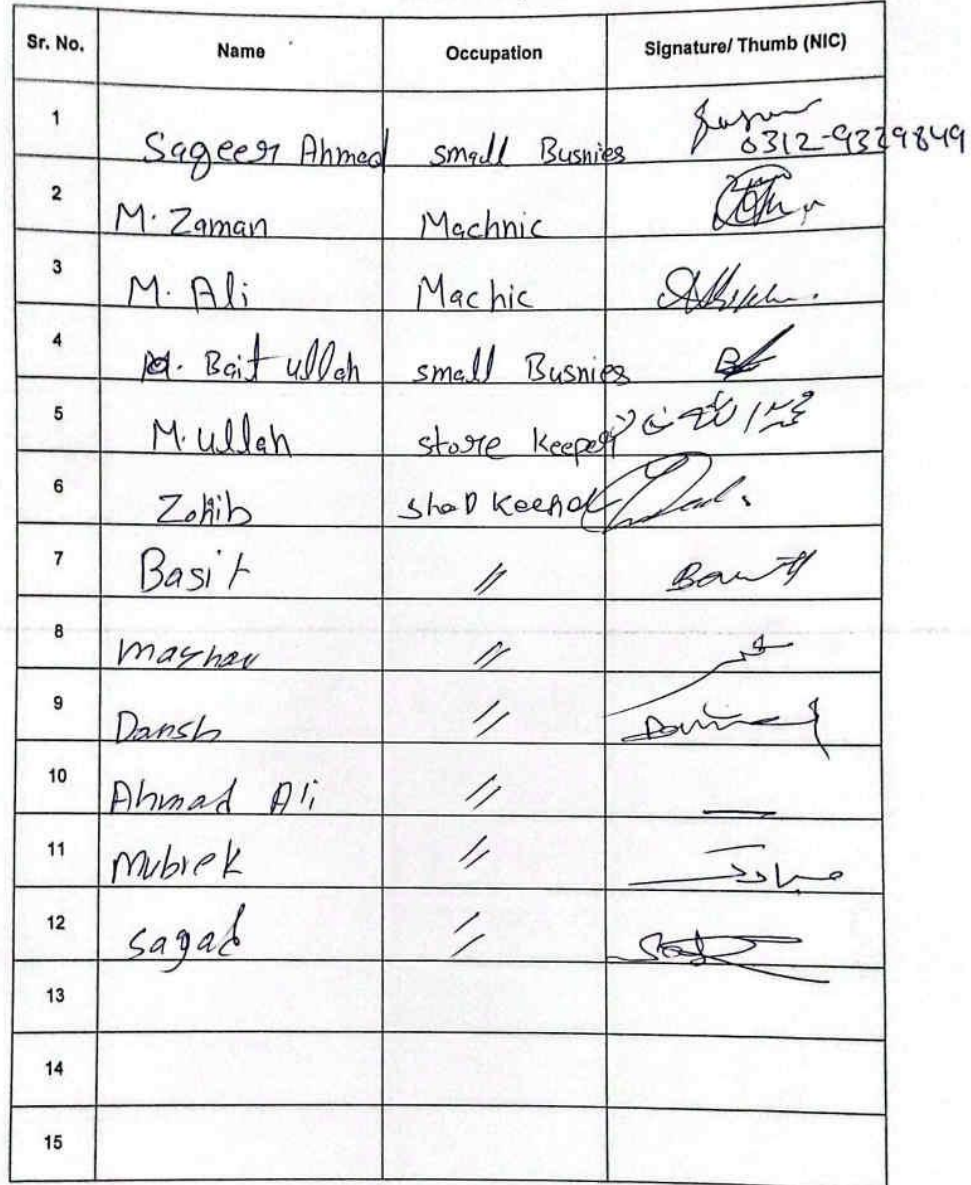 Sr. No. Name Occupation Signature/ Thumb (NIC)
1 Sageer Ahmed small Busnies 0312-9329849
2 M. Zaman Machnic
3 M. Ali Machic
4 M. Bait ullah small Busnies
5 M. ullah store Keeper
6 Zohib
7 Basit //
8 //
9 Dansh //
10 Ahmad Ali //
11 Mubrek // مبارک
12 sagad //
13
14
15